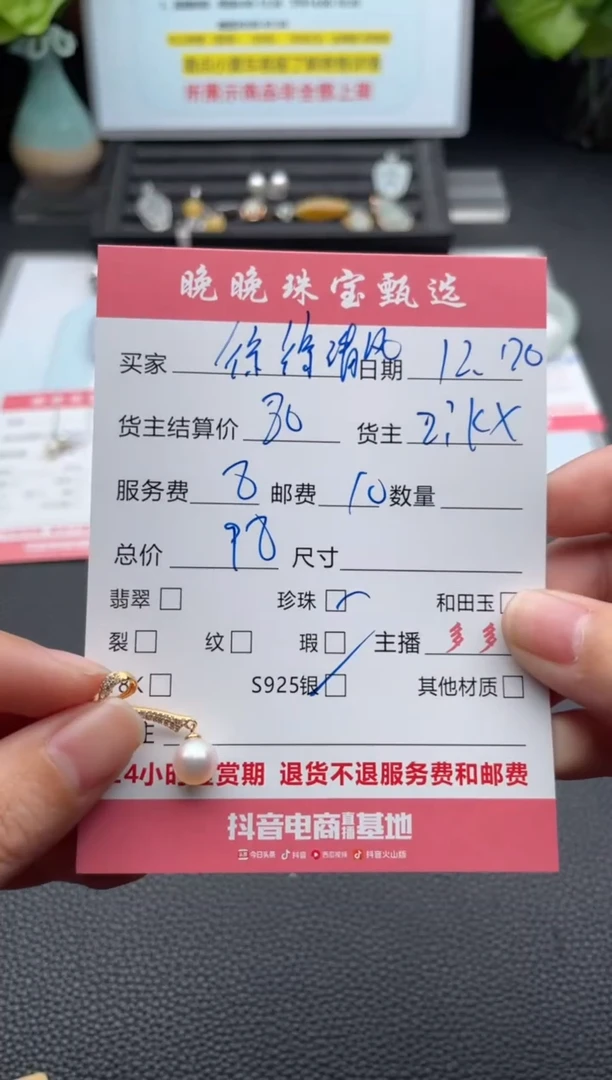 所展示商品非全部上架
晚晚珠宝甄选
买家 徐徐清风 日期 12.20
货主结算价 80 货主 ZikX
服务费 8 邮费 10 数量
总价 98 尺寸
翡翠 珍珠 和田玉
裂 纹 瑕 主播 多多
S925银 其他材质
24小时 赏期 退货不退服务费和邮费
抖音电商直播基地
今日头条 抖音 西瓜视频 抖音火山版